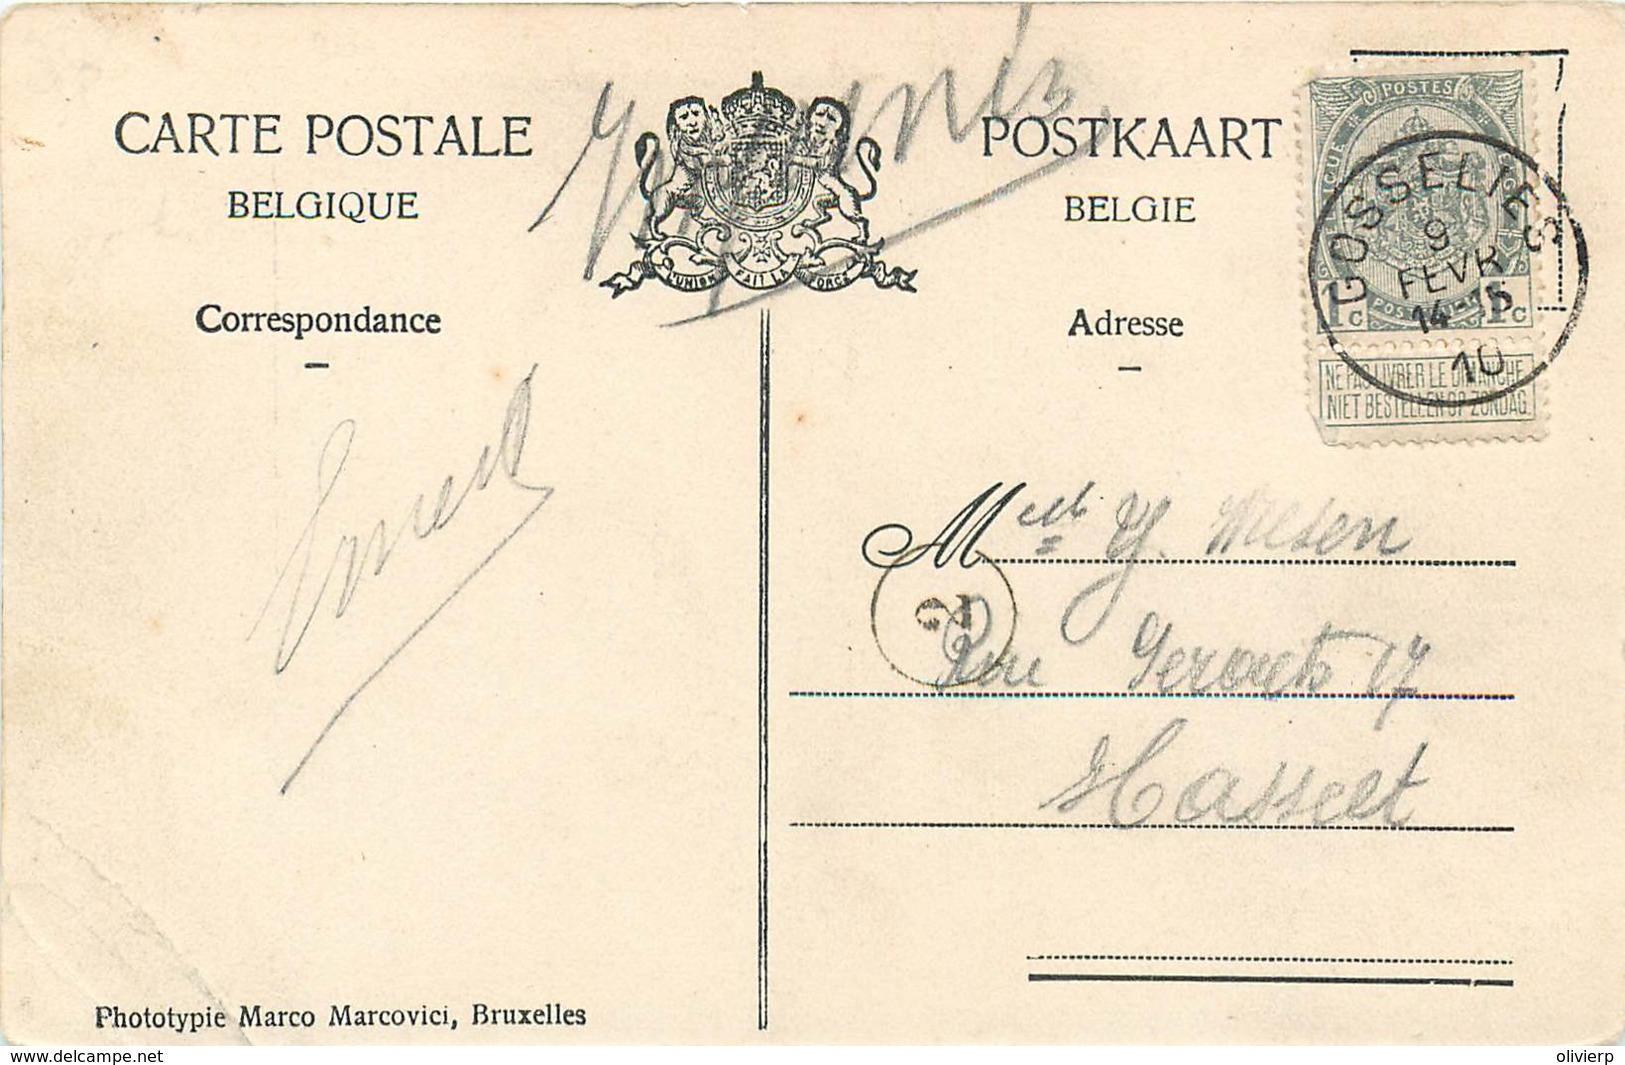 CARTE POSTALE
BELGIQUE
POSTKAART
BELGIE
L'UNION FAIT LA FORCE
Correspondance
Adresse
POSTES
1 c
POST
1 c
NE PAS LIVRER LE DIMANCHE
NIET BESTELLEN OP ZONDAG
GOSSELIES
9
FEVR
14 - 15
10
Melle Y.
2
Rue Geraets 17
Hasselt
Phototypie Marco Marcovici, Bruxelles
www.delcampe.net
olivierp